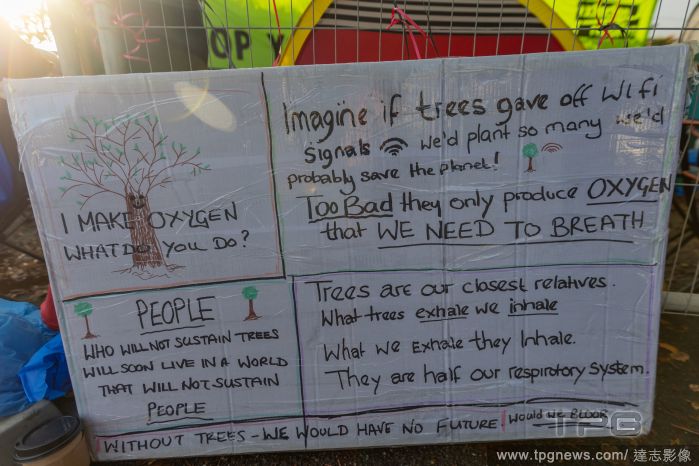 OP
I MAKE OXYGEN
WHAT DO YOU DO?
Imagine if trees gave off WiFi
signals we'd plant so many we'd
probably save the planet!
Too Bad they only produce OXYGEN
that WE NEED TO BREATH
PEOPLE
WHO WILL NOT SUSTAIN TREES
WILL SOON LIVE IN A WORLD
THAT WILL NOT SUSTAIN
PEOPLE
Trees are our closest relatives.
What trees exhale we inhale
What we Exhale they Inhale.
They are half our respiratory system.
WITHOUT TREES - WE WOULD HAVE NO FUTURE!
Would we
TPG
www.tpgnews.com/ 達志影像